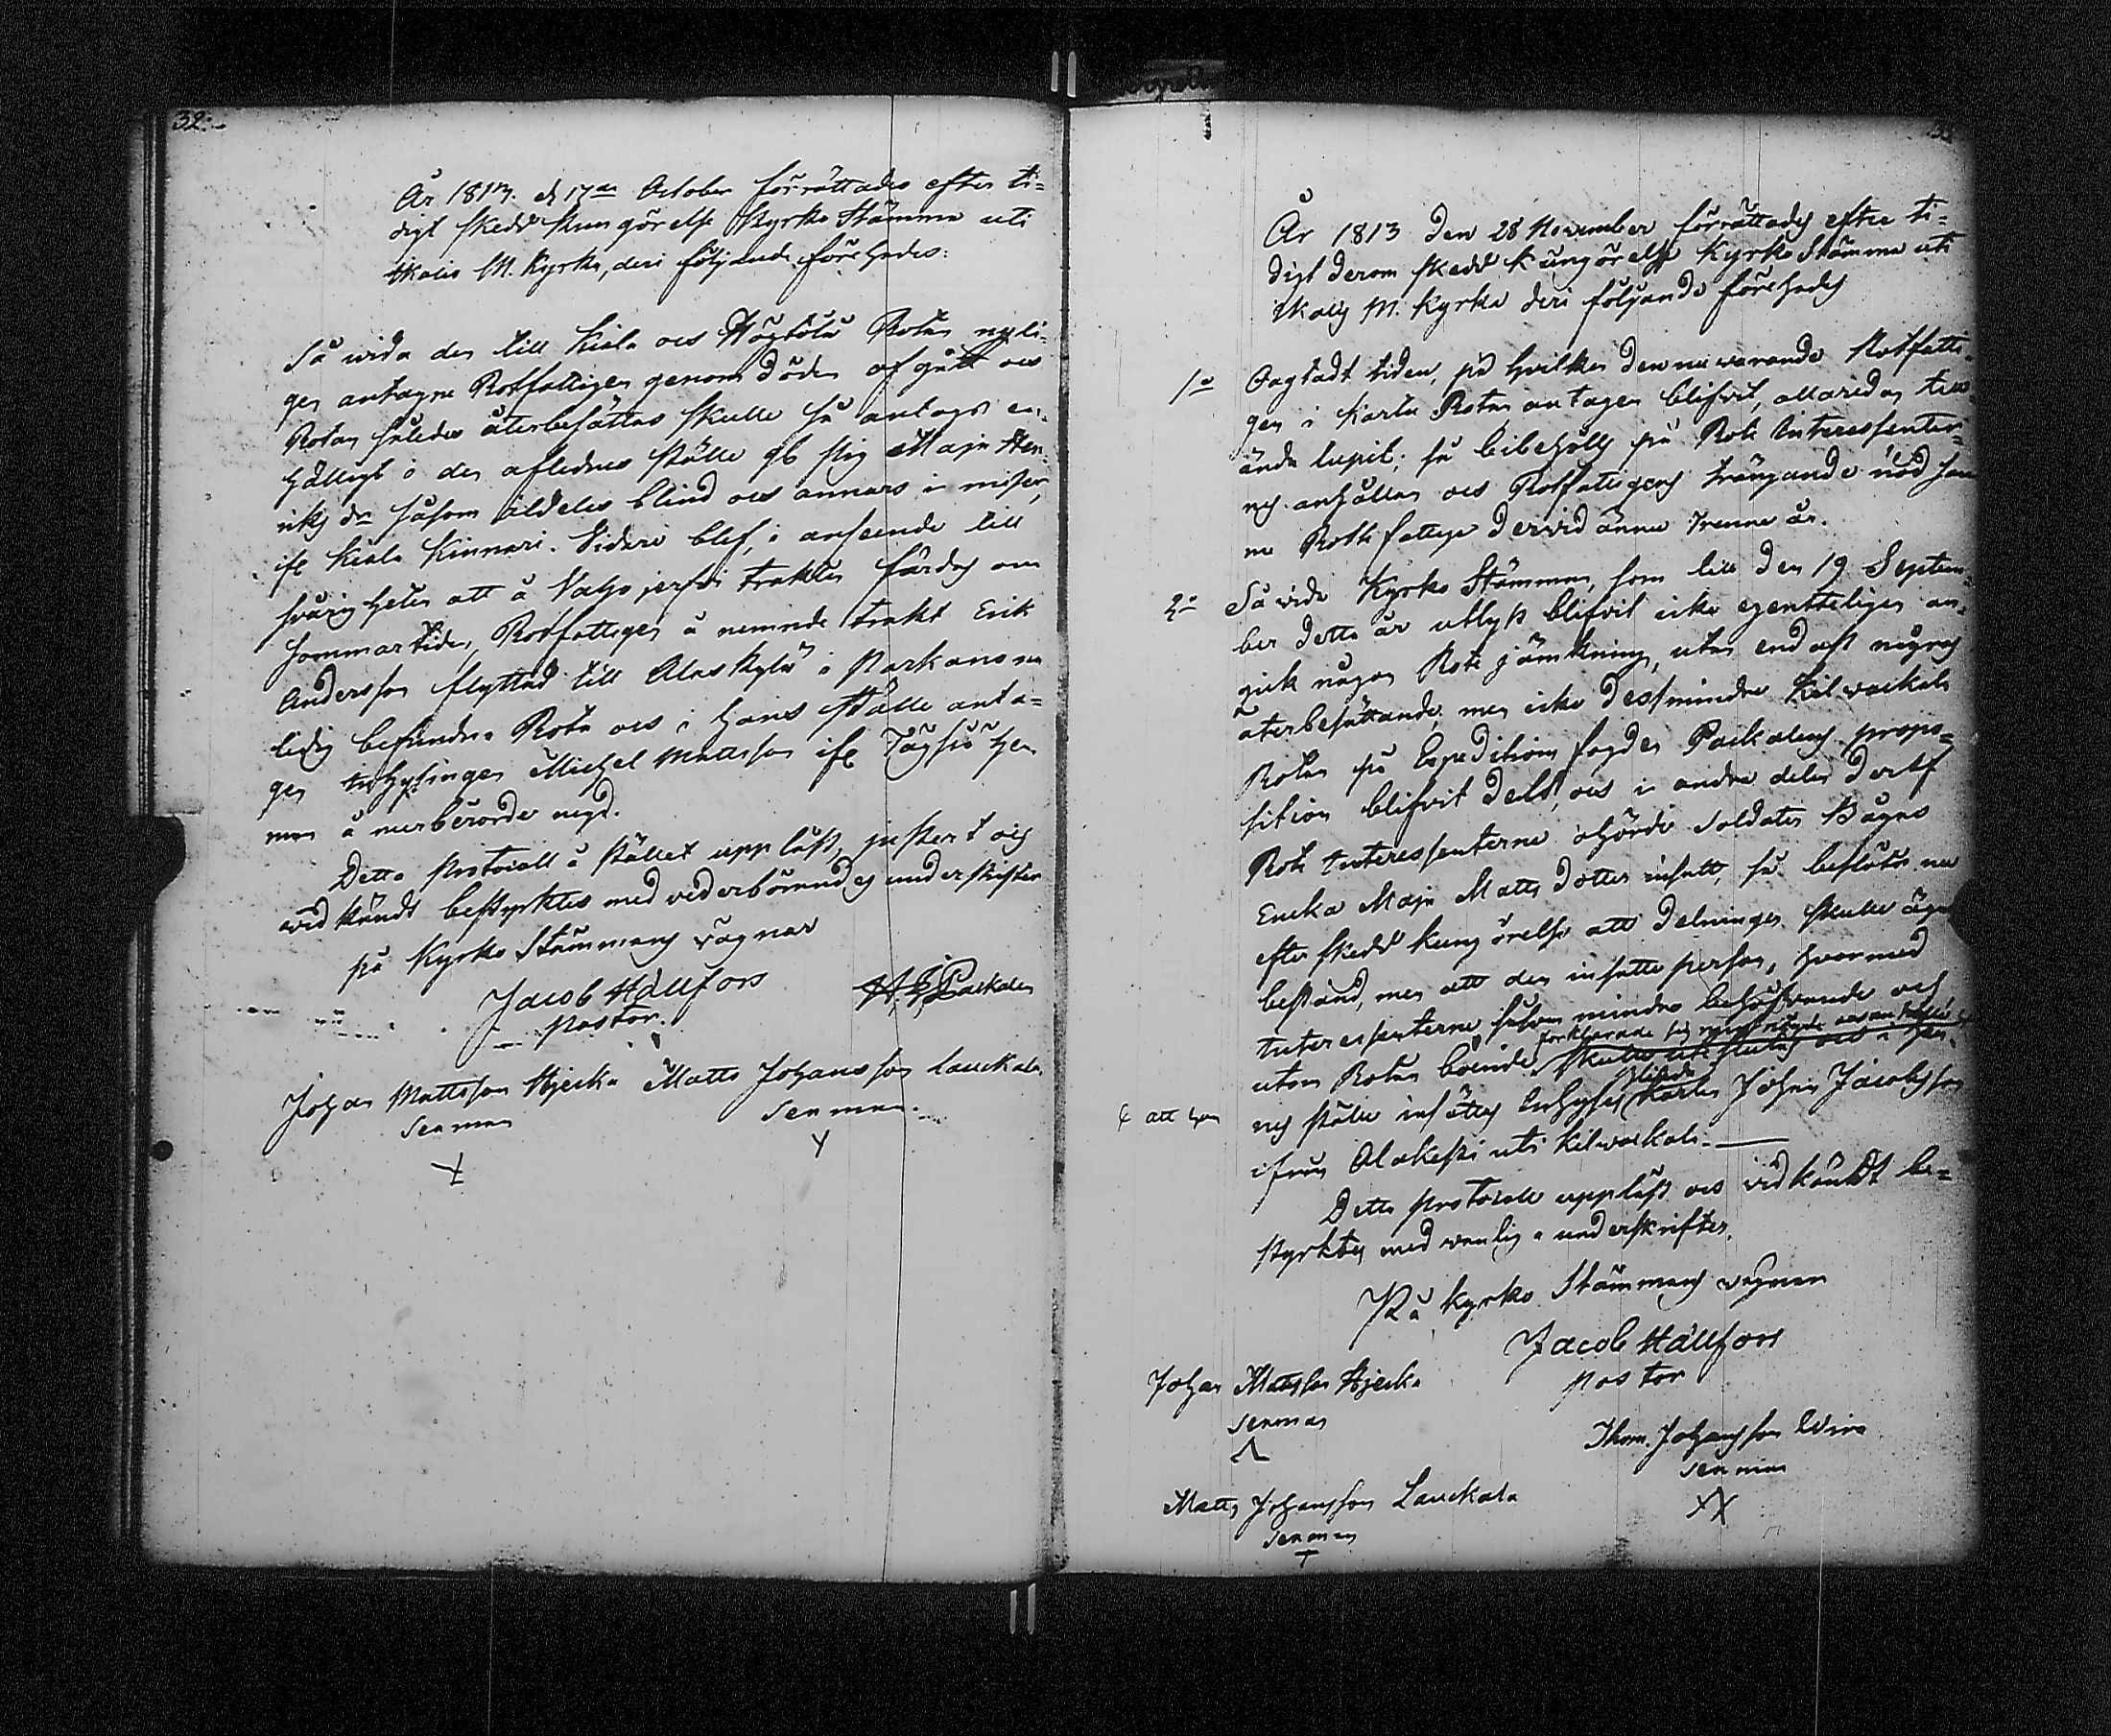 32.
År 1813. d 17de October förrättades efter ti=
digt skedd kungörelse Kyrko Stämma uti
Ikalis M. Kyrka, deri följande förehades:
Så wida den till Kiala och Högtölä Rotan nyli=
gen antagne Rotfattigen genom döden afgått och
Rotan således återbesättas skulle så antogs en=
hälligt i den aflednes ställe Maja Hen=
riks dr såsom aldeles blind och annars i miser,
ifr Kiala Kinnari. Vidare blef, i anseende till
svårigheten att å Vahojerfvi trakten färdas om
sommartiden, Rotfattigen å nemnde trakt Erik
Andersson flyttad till Alaskylä i Parkano nu
ledig befundne Rota och i hans ställe anta=
gen inhysingen Michel Mattsson ifr
man å nerberörde negd.
Detta Protocoll å stället uppläst, justert och
vidkändt bestyrktes med vederbörandes underskrifter
på Kyrko Stämmans vägnar
Jacob Hällfors
Pastor.
Packalen
Johan Mattsson Hjerka Matts Johansson Lauckala
Sexman Sexman.
År 1813 den 28 November förrättades efter ti=
digt derom skedd kungörelse Kyrko Stämma uti
Ikalis M. Kyrka deri följande förehades
1o Oagtadt tiden, på hvilken den nu warande Rotfatti=
gen i Kartu Rotan antagen blifvit, allaredan till
ända lupit; så bibehölls på Rote Interessenter=
nes anhållan och Rotfatigens trängande nöd sam
me Rotefattige dervid ännu trenne år.
2o Så vida Kyrko Stämman, som till den 19 Septem=
ber detta år utlyst blifvit icke egentteligen an=
gick någon Rote jämkning, utan endast någras
återbesättande men icke dess mindre Kilwackala
Rotan på Expeditions fogden Packalens propo=
sition blifvit delt, och i andra delen deraf
Rote Interessenterne ohörde Soldaten Bågas
Encka Maja Matts dotter insatt, så beslöts nu
efter skedd kungörelse att delningen skulle äga
bestånd, men att den insatte person, hvarmed
Interessenterne såsom mindre behöfwande och
utom Rotan boende förklarade sig
skulle uteslutas och i hen=
& att han
nes ställe insättes Inhyses Karlen blinda Johan Jacobsson
ifrån Alakeski uti Kilwackala.
Detta Protocoll uppläst och vidkändt be=
styrktes med wanliga underskrifter.
På Kyrko Stämmans vägnar
Jacob Hällfors
Pastor
Johan Mattsson Hjerka
Sexman
Thom. Johansson Wira
Sexman
Matts Johansson Lauckala
Sexman